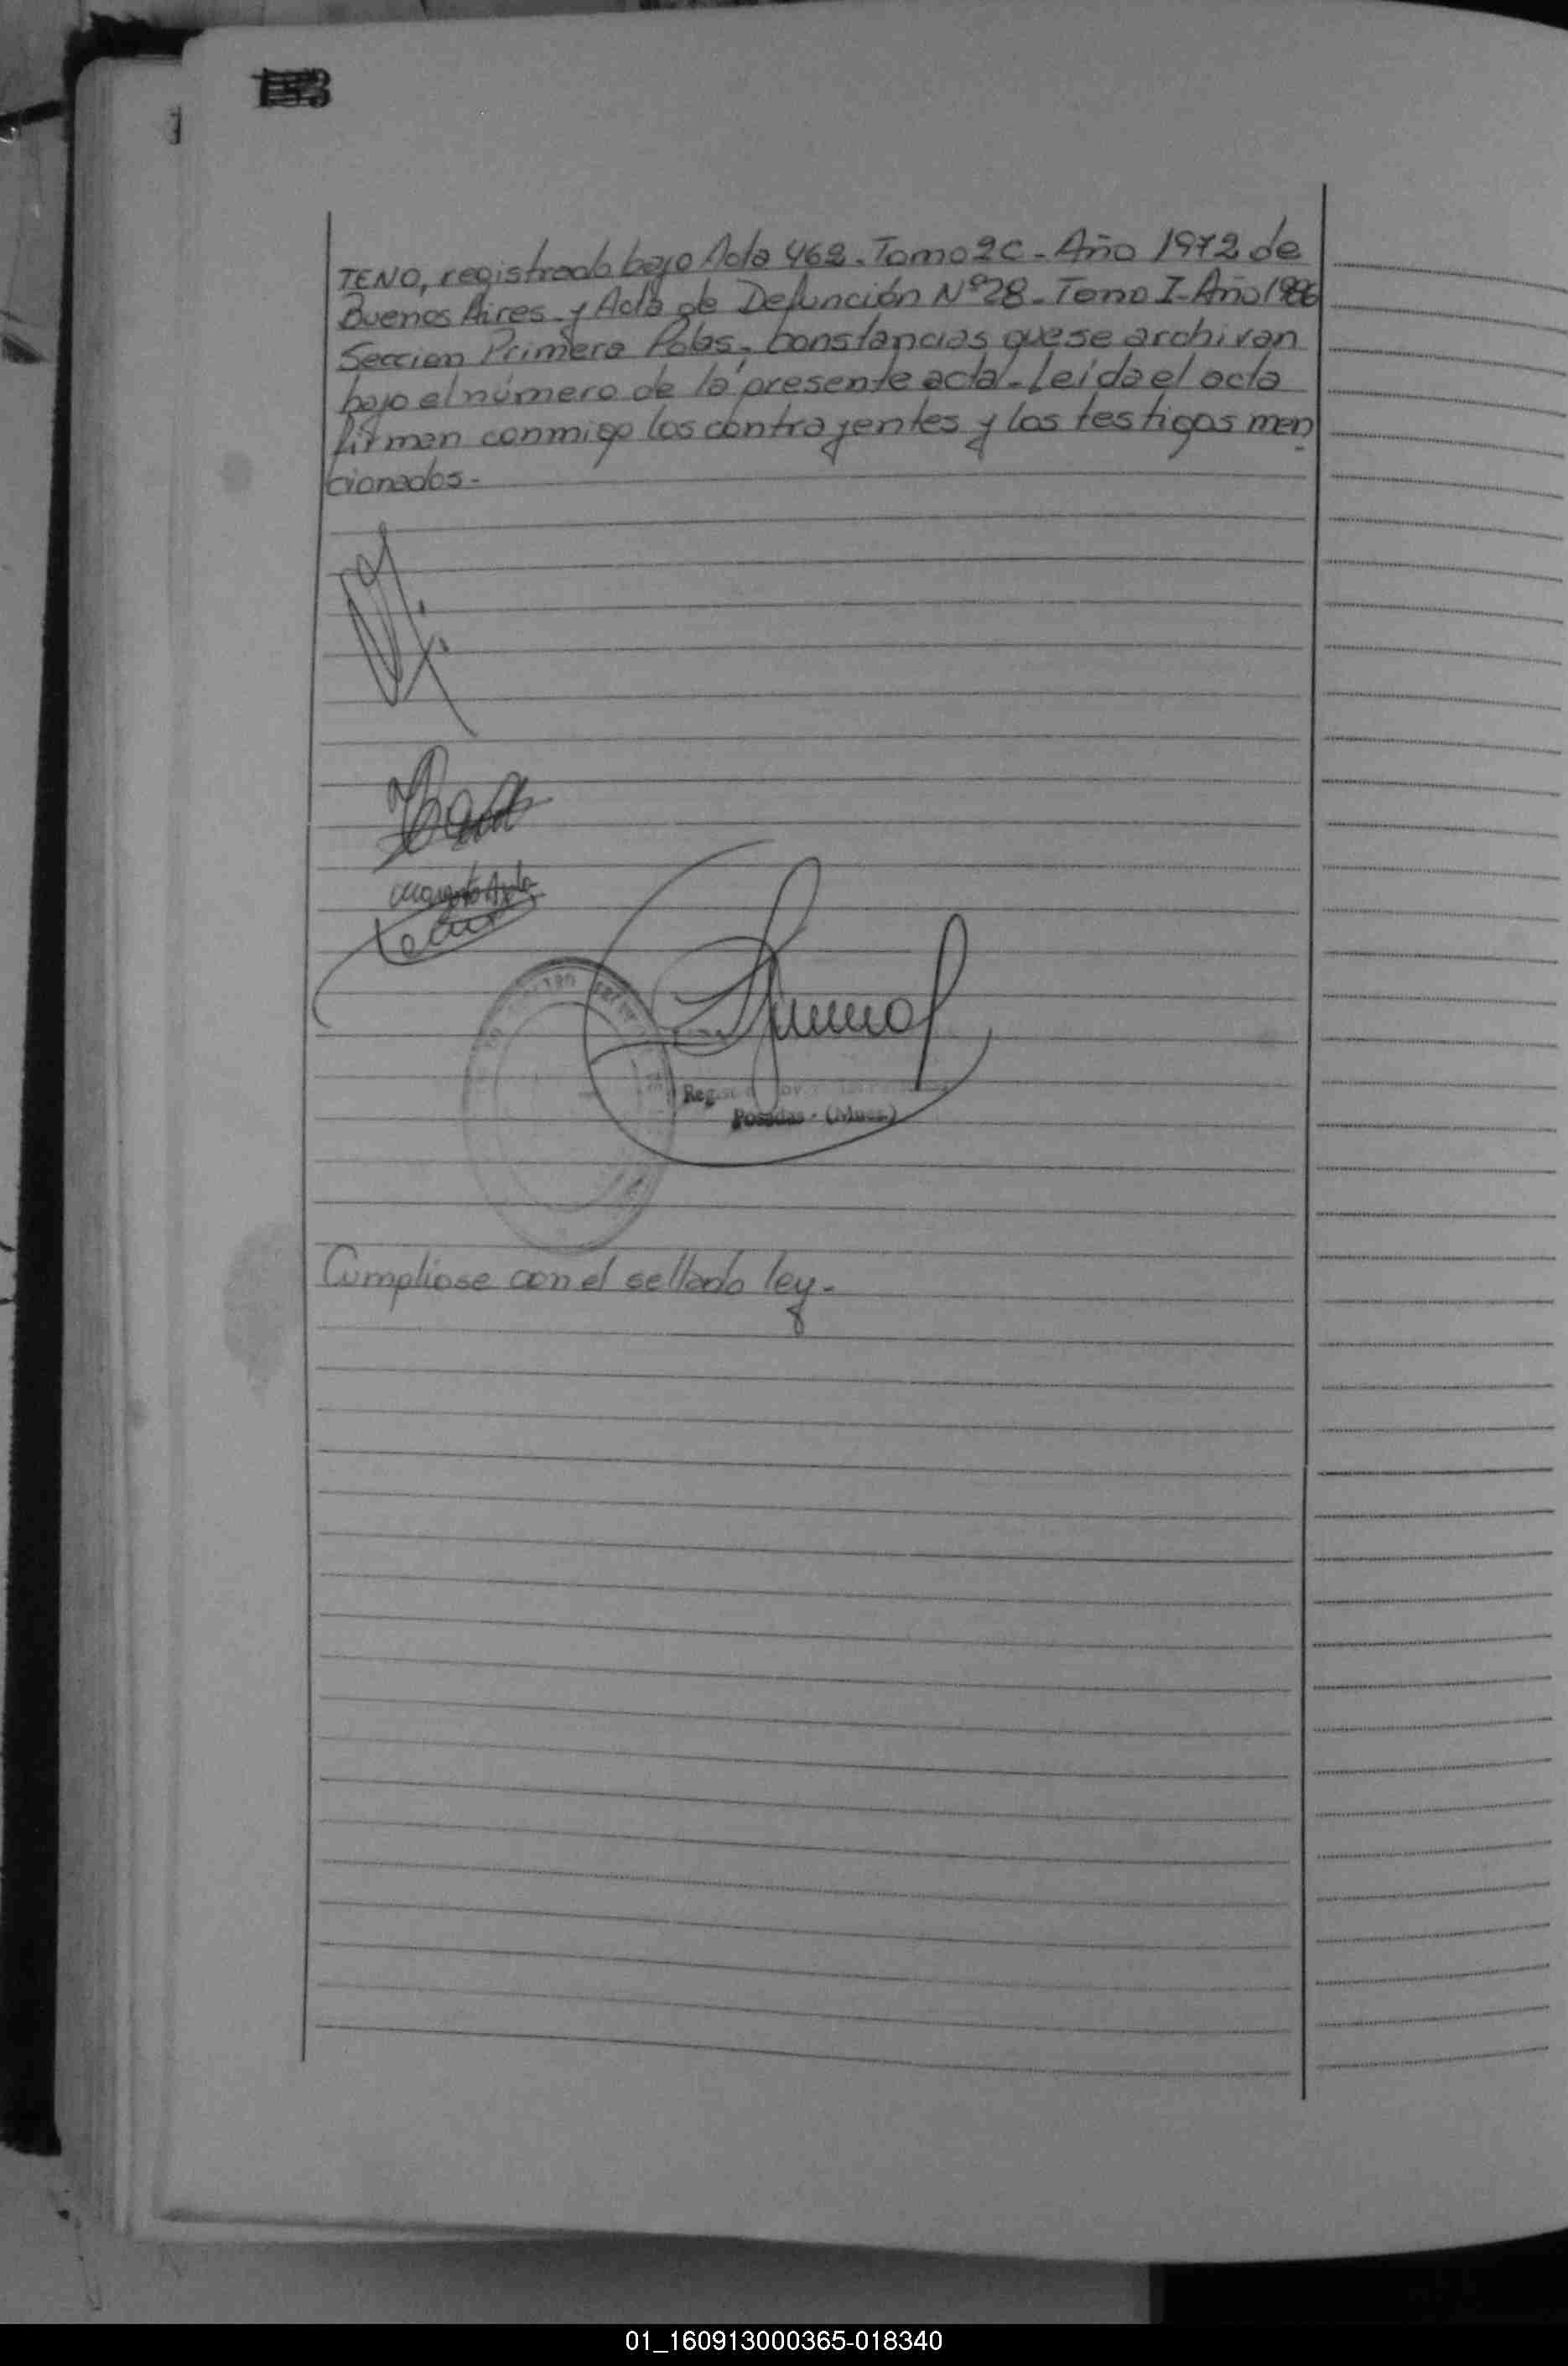 TENO, registrado bajo Acta 462. Tomo 2C - Año 1972 de
Buenos Aires y Acta de Defunción Nº 28 - Tomo I - Año 1986
Sección Primera Pdas. Constancias que se archivan
bajo el número de la presente acta - Leída el acta
firman conmigo los contrayentes y los testigos men
cionados.-
Posadas - (Mnes.)
Cumpliose con el sellado ley.-
01_160913000365-018340